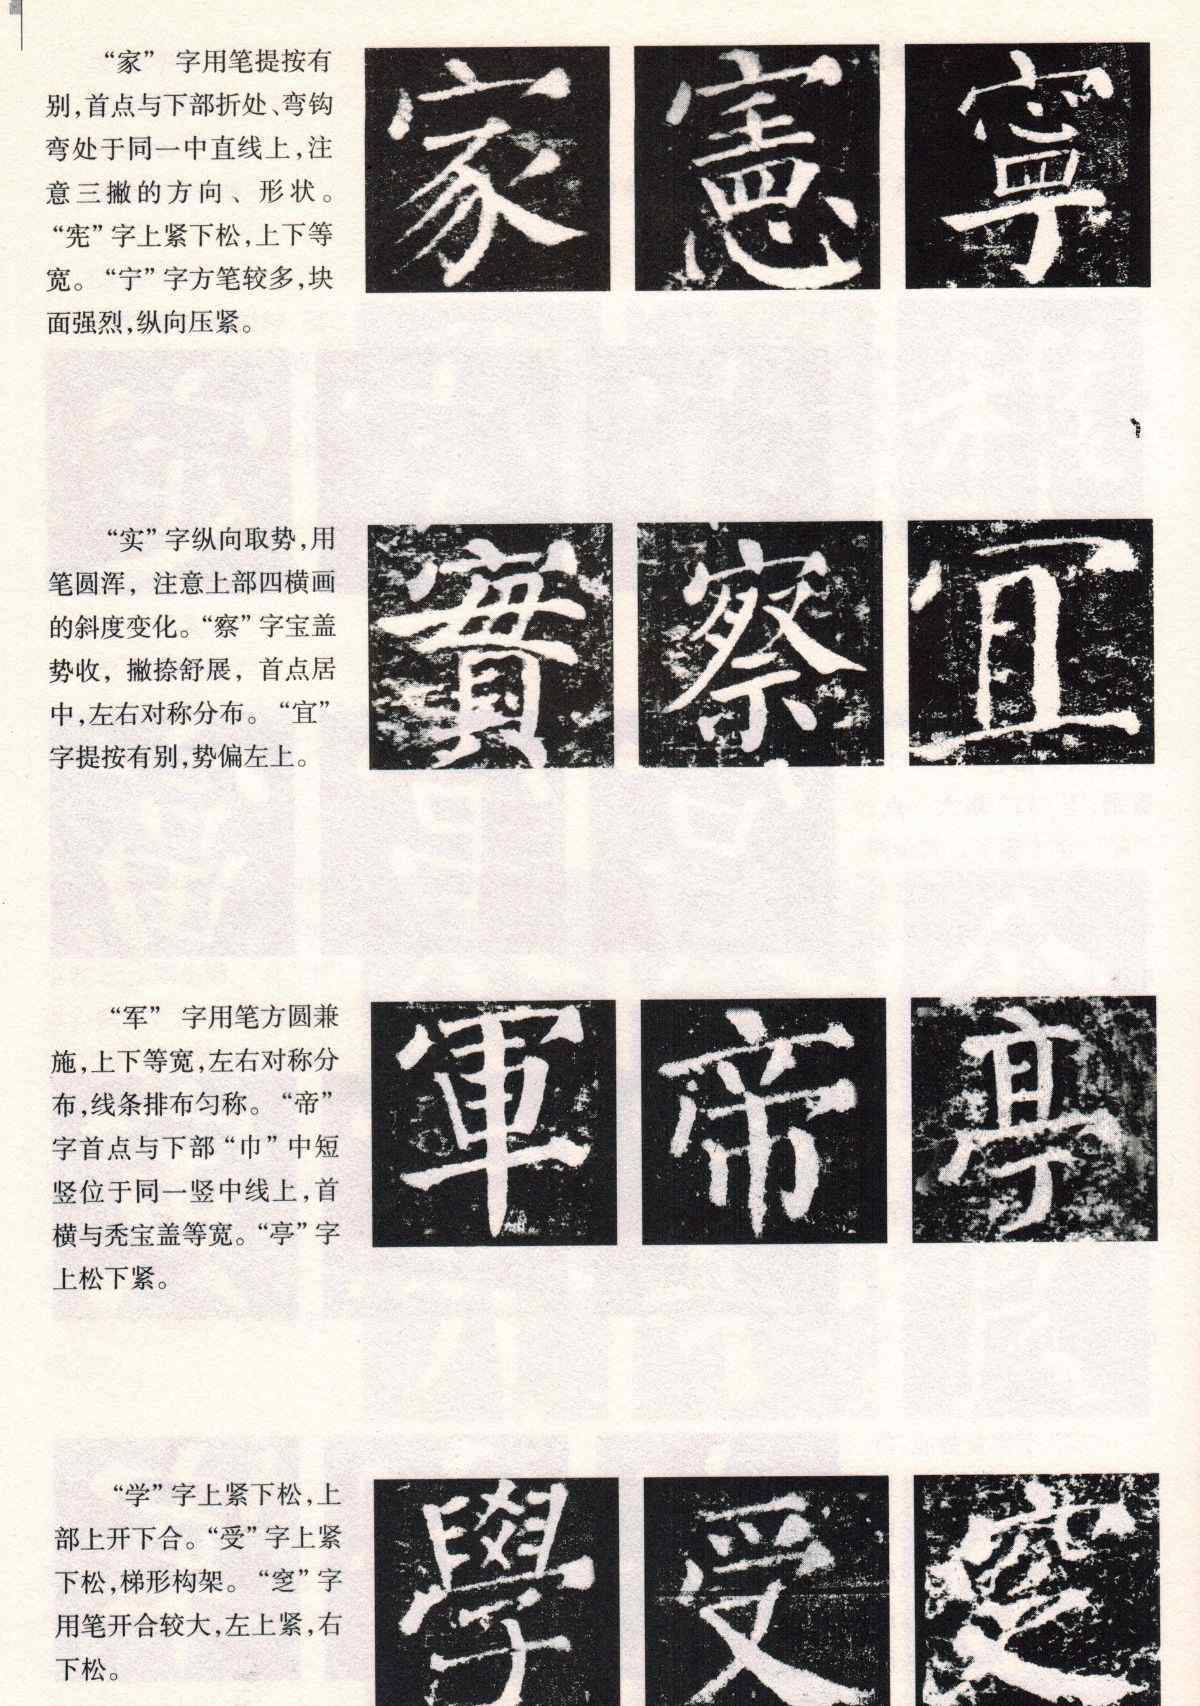 “家” 字用笔提按有
别,首点与下部折处、弯钩
弯处于同一中直线上,注
意三撇的方向、形状。
“宪”字上紧下松,上下等
宽。“宁”字方笔较多,块
面强烈,纵向压紧。
家 憲 寧
“实”字纵向取势,用
笔圆浑，注意上部四横画
的斜度变化。“察”字宝盖
势收，撇捺舒展，首点居
中,左右对称分布。“宜”
字提按有别,势偏左上。
實 察 宜
“军” 字用笔方圆兼
施,上下等宽,左右对称分
布,线条排布匀称。“帝”
字首点与下部“巾”中短
竖位于同一竖中线上,首
横与秃宝盖等宽。“亭”字
上松下紧。
軍 帝 亭
“学”字上紧下松,上
部上开下合。“受”字上紧
下松,梯形构架。“窆”字
用笔开合较大,左上紧,右
下松。
學 受 窆